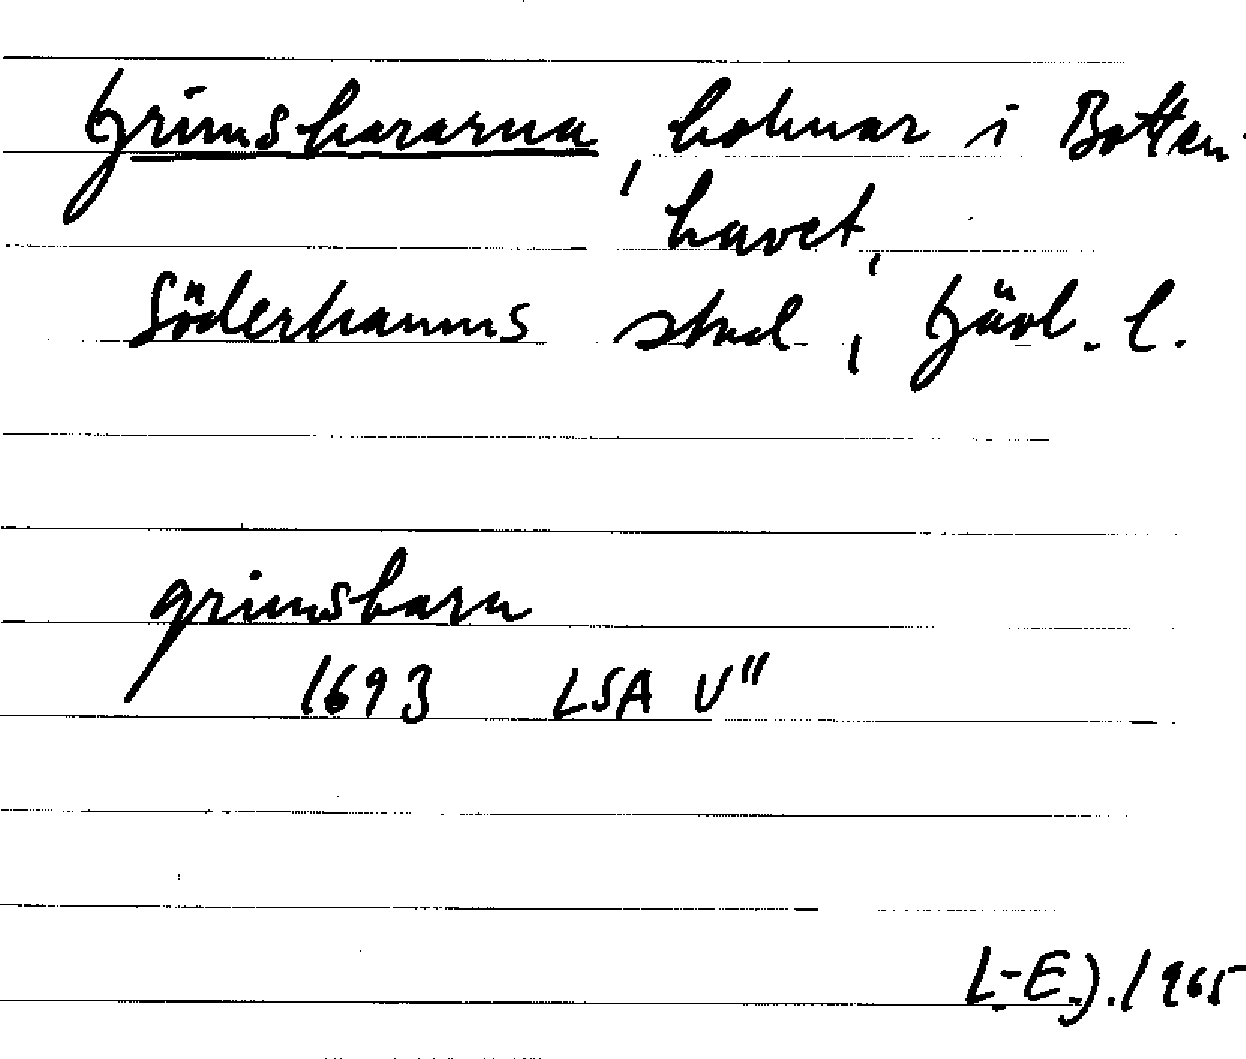 Grimshararna, holmar i Botten-
havet,
Söderhamns stad, Gävl. l.
grimsharn
1693 LSA U"
L-E.J. 1965